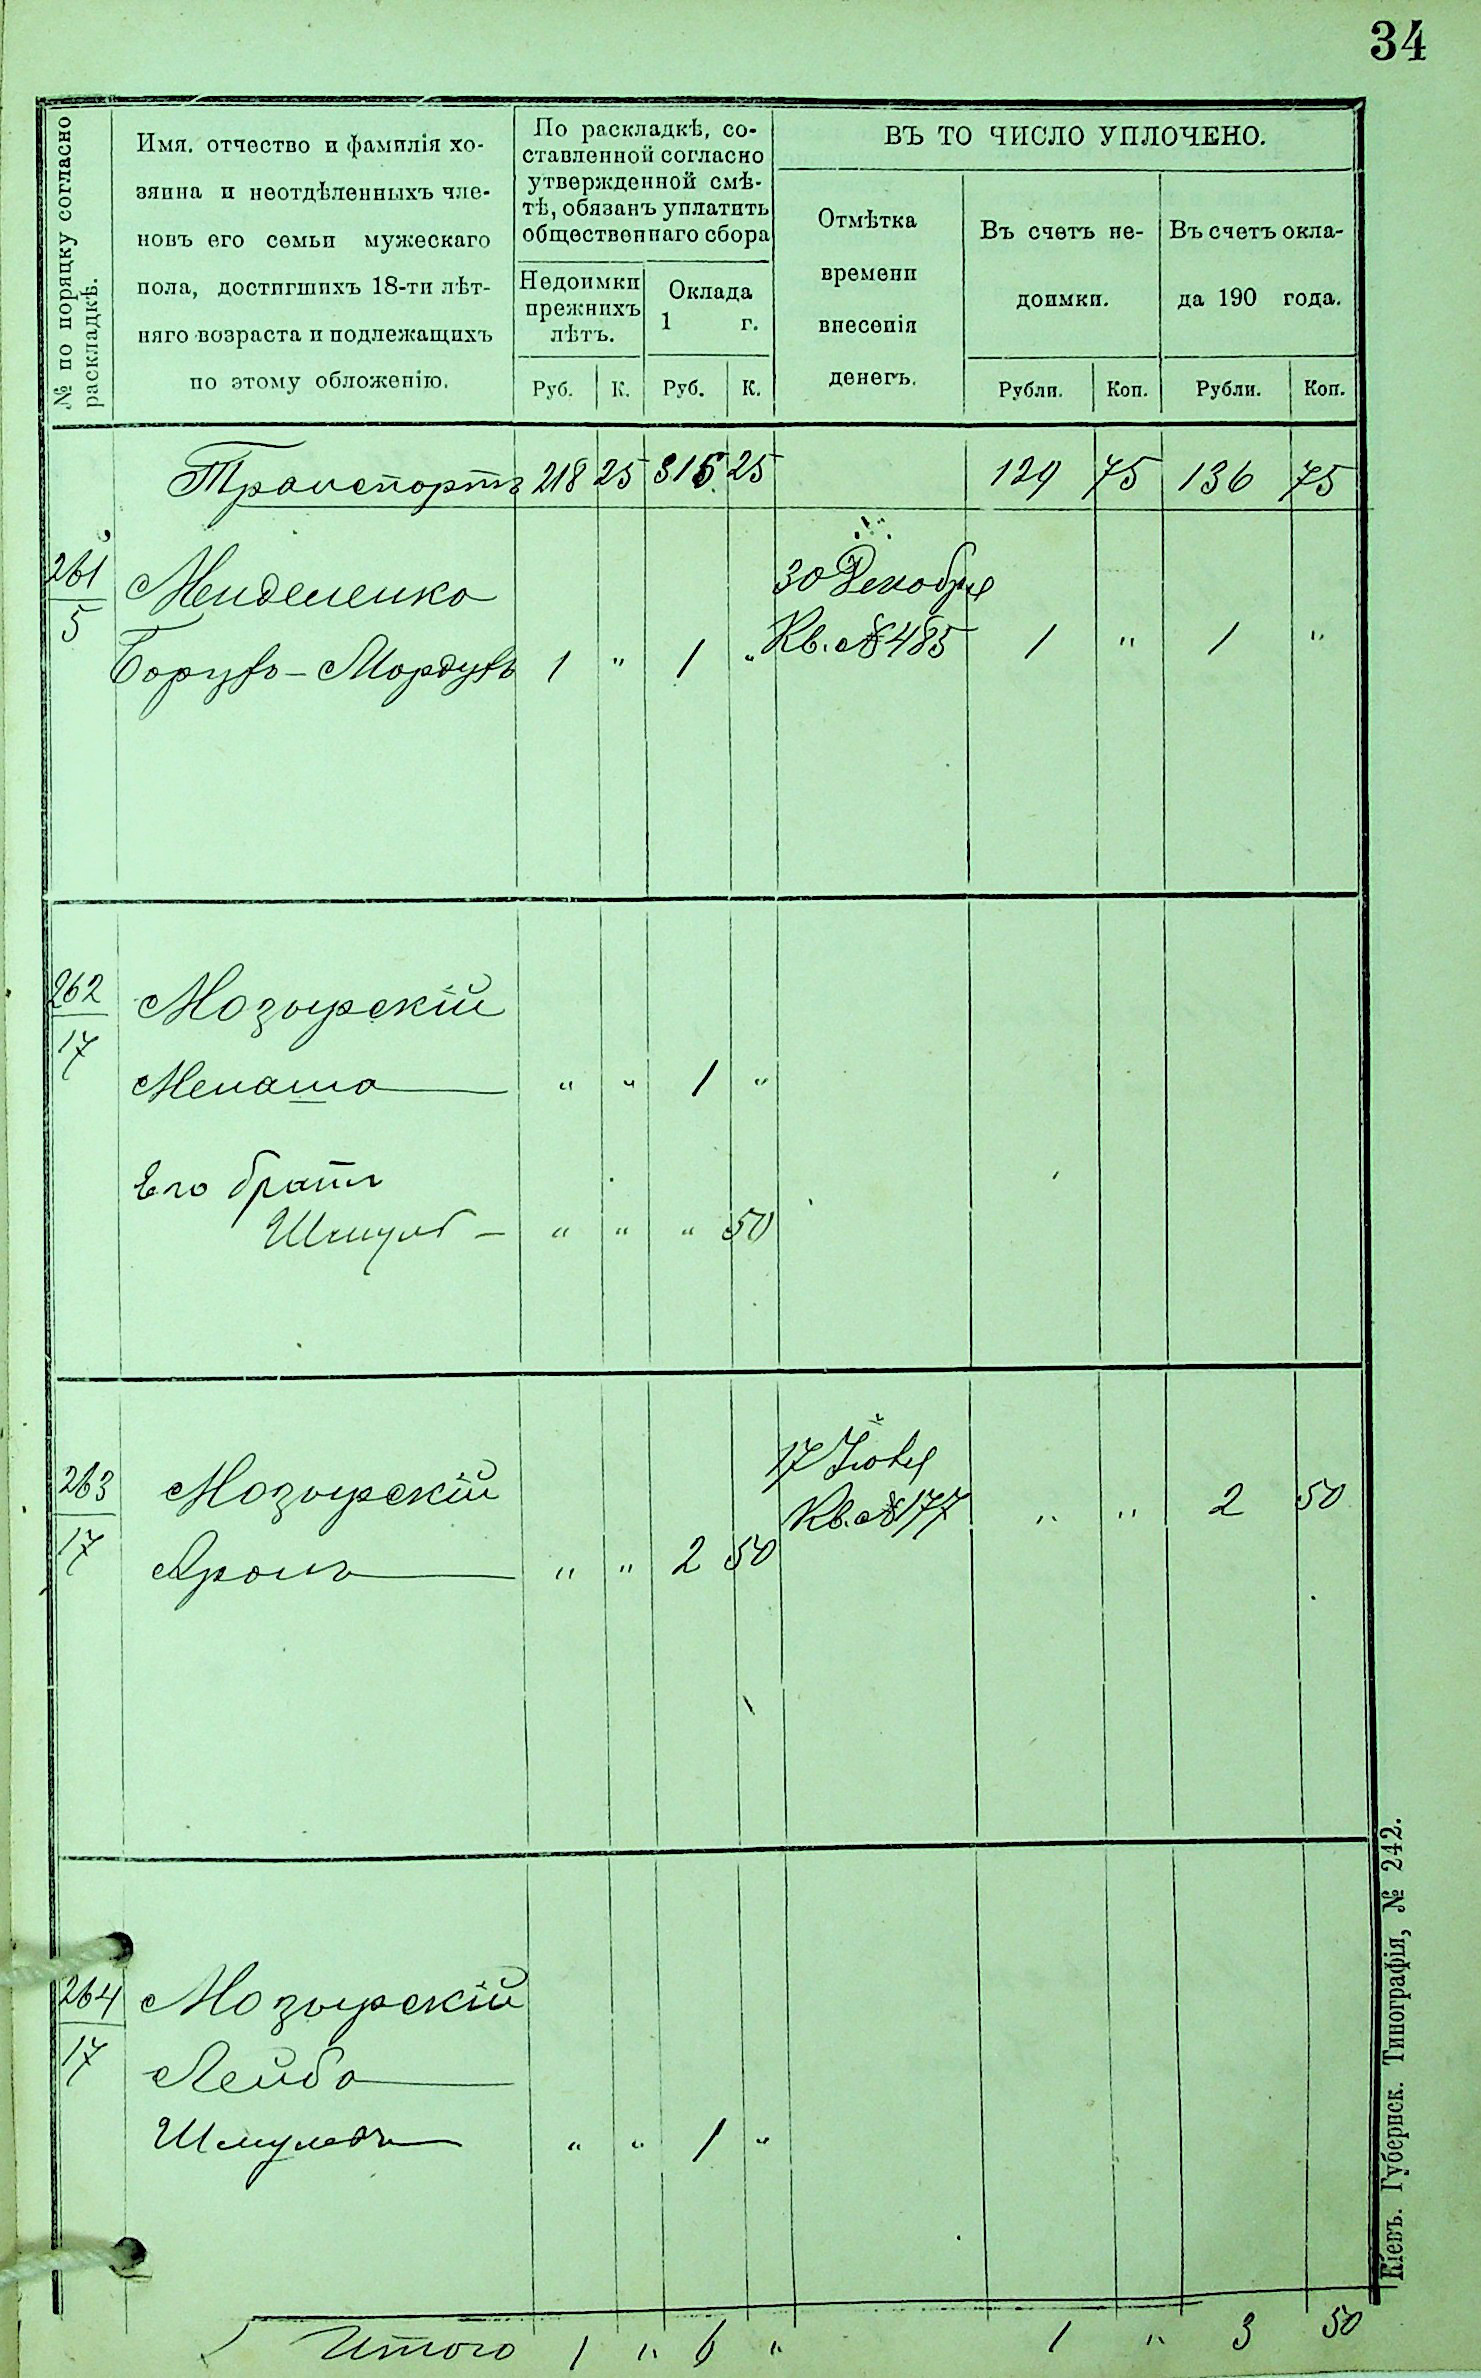 34
№ по порядку согласно
раскладкѣ.
Имя, отчество и фамилія хо-
зяина и неотдѣленныхъ чле-
новъ его семьи мужескаго
пола, достигшихъ 18-ти лѣт-
няго возраста и подлежащихъ
по этому обложенію.
По раскладкѣ, со-
ставленной согласно
утвержденной смѣ-
тѣ, обязанъ уплатить
общественнаго сбора
Недоимки
прежнихъ
лѣтъ.
Оклада
1 г.
ВЪ ТО ЧИСЛО УПЛОЧЕНО.
Отмѣтка
времени
внесенія
денегъ.
Въ счетъ не-
доимки.
Въ счетъ окла-
да 190 года.
Руб. К. Руб. К. Рубли. Коп. Рубли. Коп.
Транспортъ 218 25 315 25 129 75 136 75
261 Менделенко 30 Декабря
5 Борухъ-Мордухъ 1 " 1 " Кв. № 485 1 " 1 "
262 Мозырскій
17 Менаша " " 1 "
Его братъ
Шмуль " " " 50
263 Мозырскій 17 Іюля
17 Аронъ " " 2 50 Кв. № 177 " " 2 50
264 Мозырскій
17 Лейба
Шмулевъ " " 1 "
Итого 1 " 6 " 1 " 3 50
Кіевъ. Губернск. Типографія, № 242.